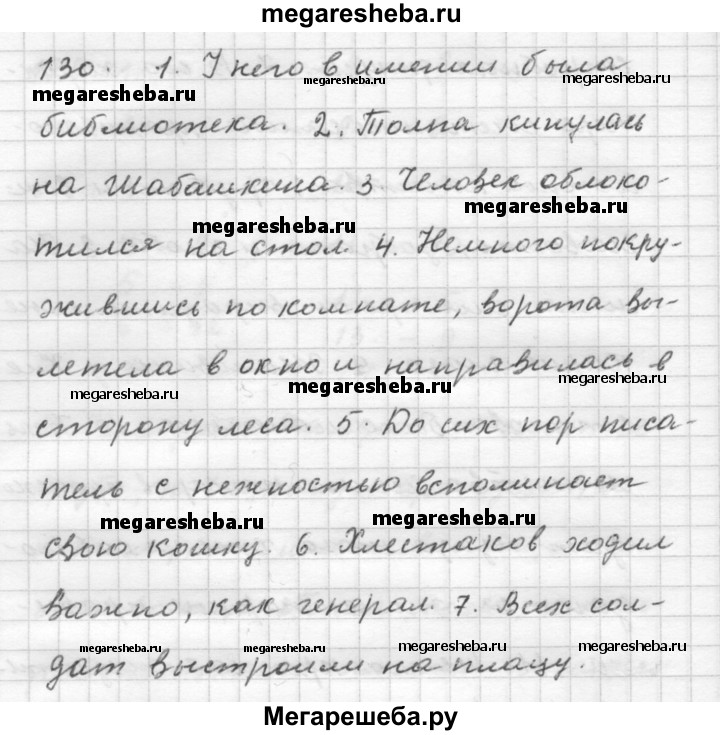 megaresheba.ru
130. 1. У него в имении была
megaresheba.ru
megaresheba.ru
megaresheba.ru
библиотека. 2. Толпа кинулась
на Шабашкина. 3. Человек облоко-
megaresheba.ru
megaresheba.ru
тился на стол. 4. Немного покру-
жившись по комнате, ворота вы-
летела в окно и направилась в
megaresheba.ru
megaresheba.ru
megaresheba.ru
сторону леса. 5. До сих пор писа-
тель с нежностью вспоминает
megaresheba.ru
megaresheba.ru
свою кошку. 6. Хлестаков ходил
важно, как генерал. 7. Всех сол-
megaresheba.ru
megaresheba.ru
megaresheba.ru
дат выстроили на плацу.
Мегарешеба.ру